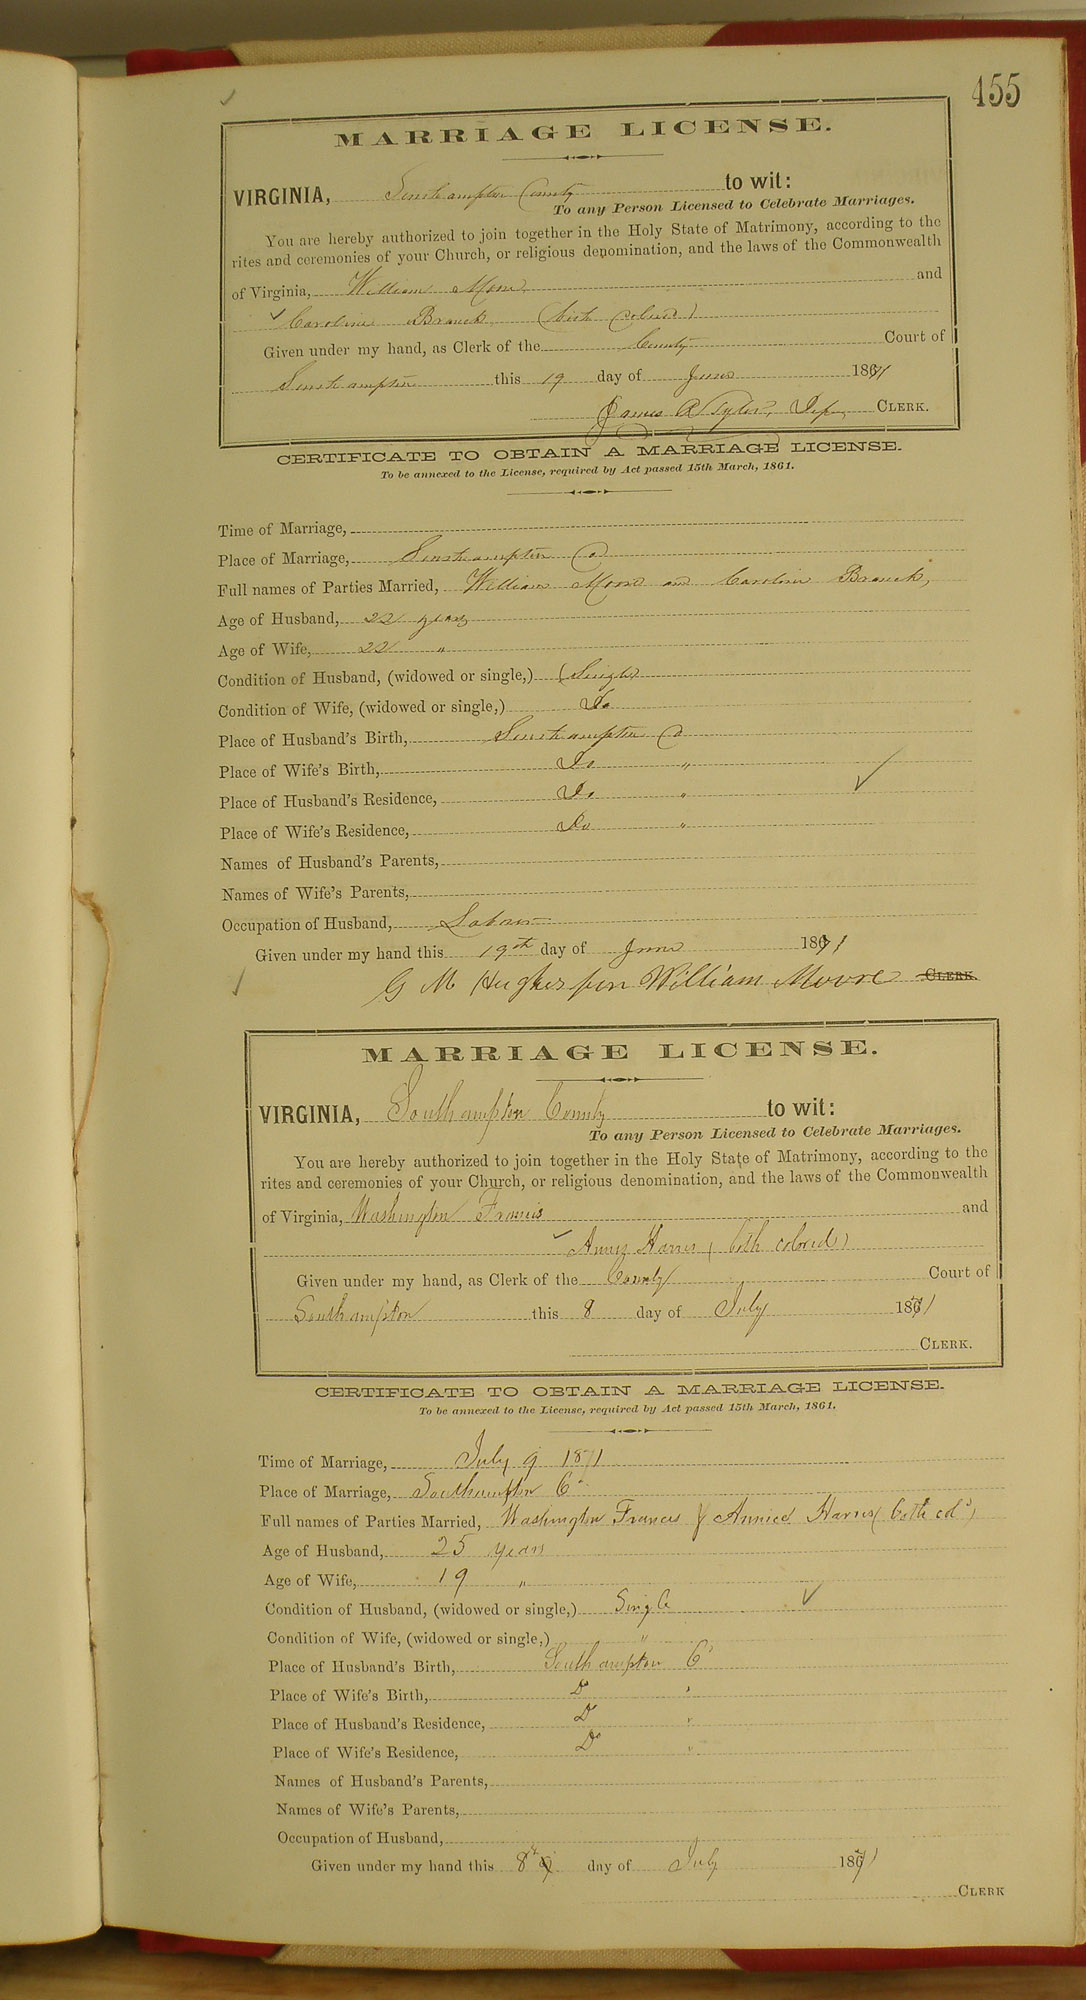 455
MARRIAGE LICENSE.
VIRGINIA, Southampton County to wit:
To any Person Licensed to Celebrate Marriages.
You are hereby authorized to join together in the Holy State of Matrimony, according to the
rites and ceremonies of your Church, or religious denomination, and the laws of the Commonwealth
of Virginia, William Moore and
Caroline Branch (both Colored)
Given under my hand, as Clerk of the County Court of
Southampton this 19 day of June 1871
James R Tyler, Dep CLERK.
CERTIFICATE TO OBTAIN A MARRIAGE LICENSE.
To be annexed to the License, required by Act passed 15th March, 1861.
Time of Marriage,
Place of Marriage, Southampton Co
Full names of Parties Married, William Moore and Caroline Branch,
Age of Husband, 22 years
Age of Wife, 22 "
Condition of Husband, (widowed or single,) (Single)
Condition of Wife, (widowed or single,) Do
Place of Husband's Birth, Southampton Co
Place of Wife's Birth, Do "
Place of Husband's Residence, Do "
Place of Wife's Residence, Do "
Names of Husband's Parents,
Names of Wife's Parents,
Occupation of Husband, Laborer
Given under my hand this 19th day of June 1871
G M Hughes for William Moore CLERK.
MARRIAGE LICENSE.
VIRGINIA, Southampton County to wit:
To any Person Licensed to Celebrate Marriages.
You are hereby authorized to join together in the Holy State of Matrimony, according to the
rites and ceremonies of your Church, or religious denomination, and the laws of the Commonwealth
of Virginia, Washington Francis and
Annez Harris (both colored)
Given under my hand, as Clerk of the County Court of
Southampton this 8 day of July 1871
CLERK.
CERTIFICATE TO OBTAIN A MARRIAGE LICENSE.
To be annexed to the License, required by Act passed 15th March, 1861.
Time of Marriage, July 9 1871
Place of Marriage, Southampton Co
Full names of Parties Married, Washington Francis & Harris (both cold)
Age of Husband, 25 years
Age of Wife, 19 "
Condition of Husband, (widowed or single,) Single
Condition of Wife, (widowed or single,) "
Place of Husband's Birth, Southampton Co
Place of Wife's Birth, Do "
Place of Husband's Residence, Do "
Place of Wife's Residence, Do "
Names of Husband's Parents,
Names of Wife's Parents,
Occupation of Husband,
Given under my hand this 8th day of July 1871
CLERK